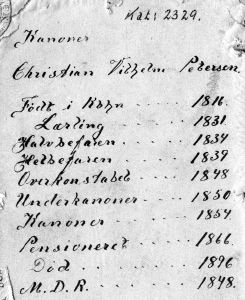 Kat: 2329.
Kanoner
Christian Vilhelm Petersen.
Født i Kbhn ..... 1816.
Lærling ..... 1831.
Halvbefaren ..... 1834
Helbefaren ..... 1839
Overkonstabel ..... 1848
Underkanoner ..... 1850
Kanoner ..... 1854
Pensioneret ..... 1866.
Død ..... 1896
M.D.R. ..... 1848.